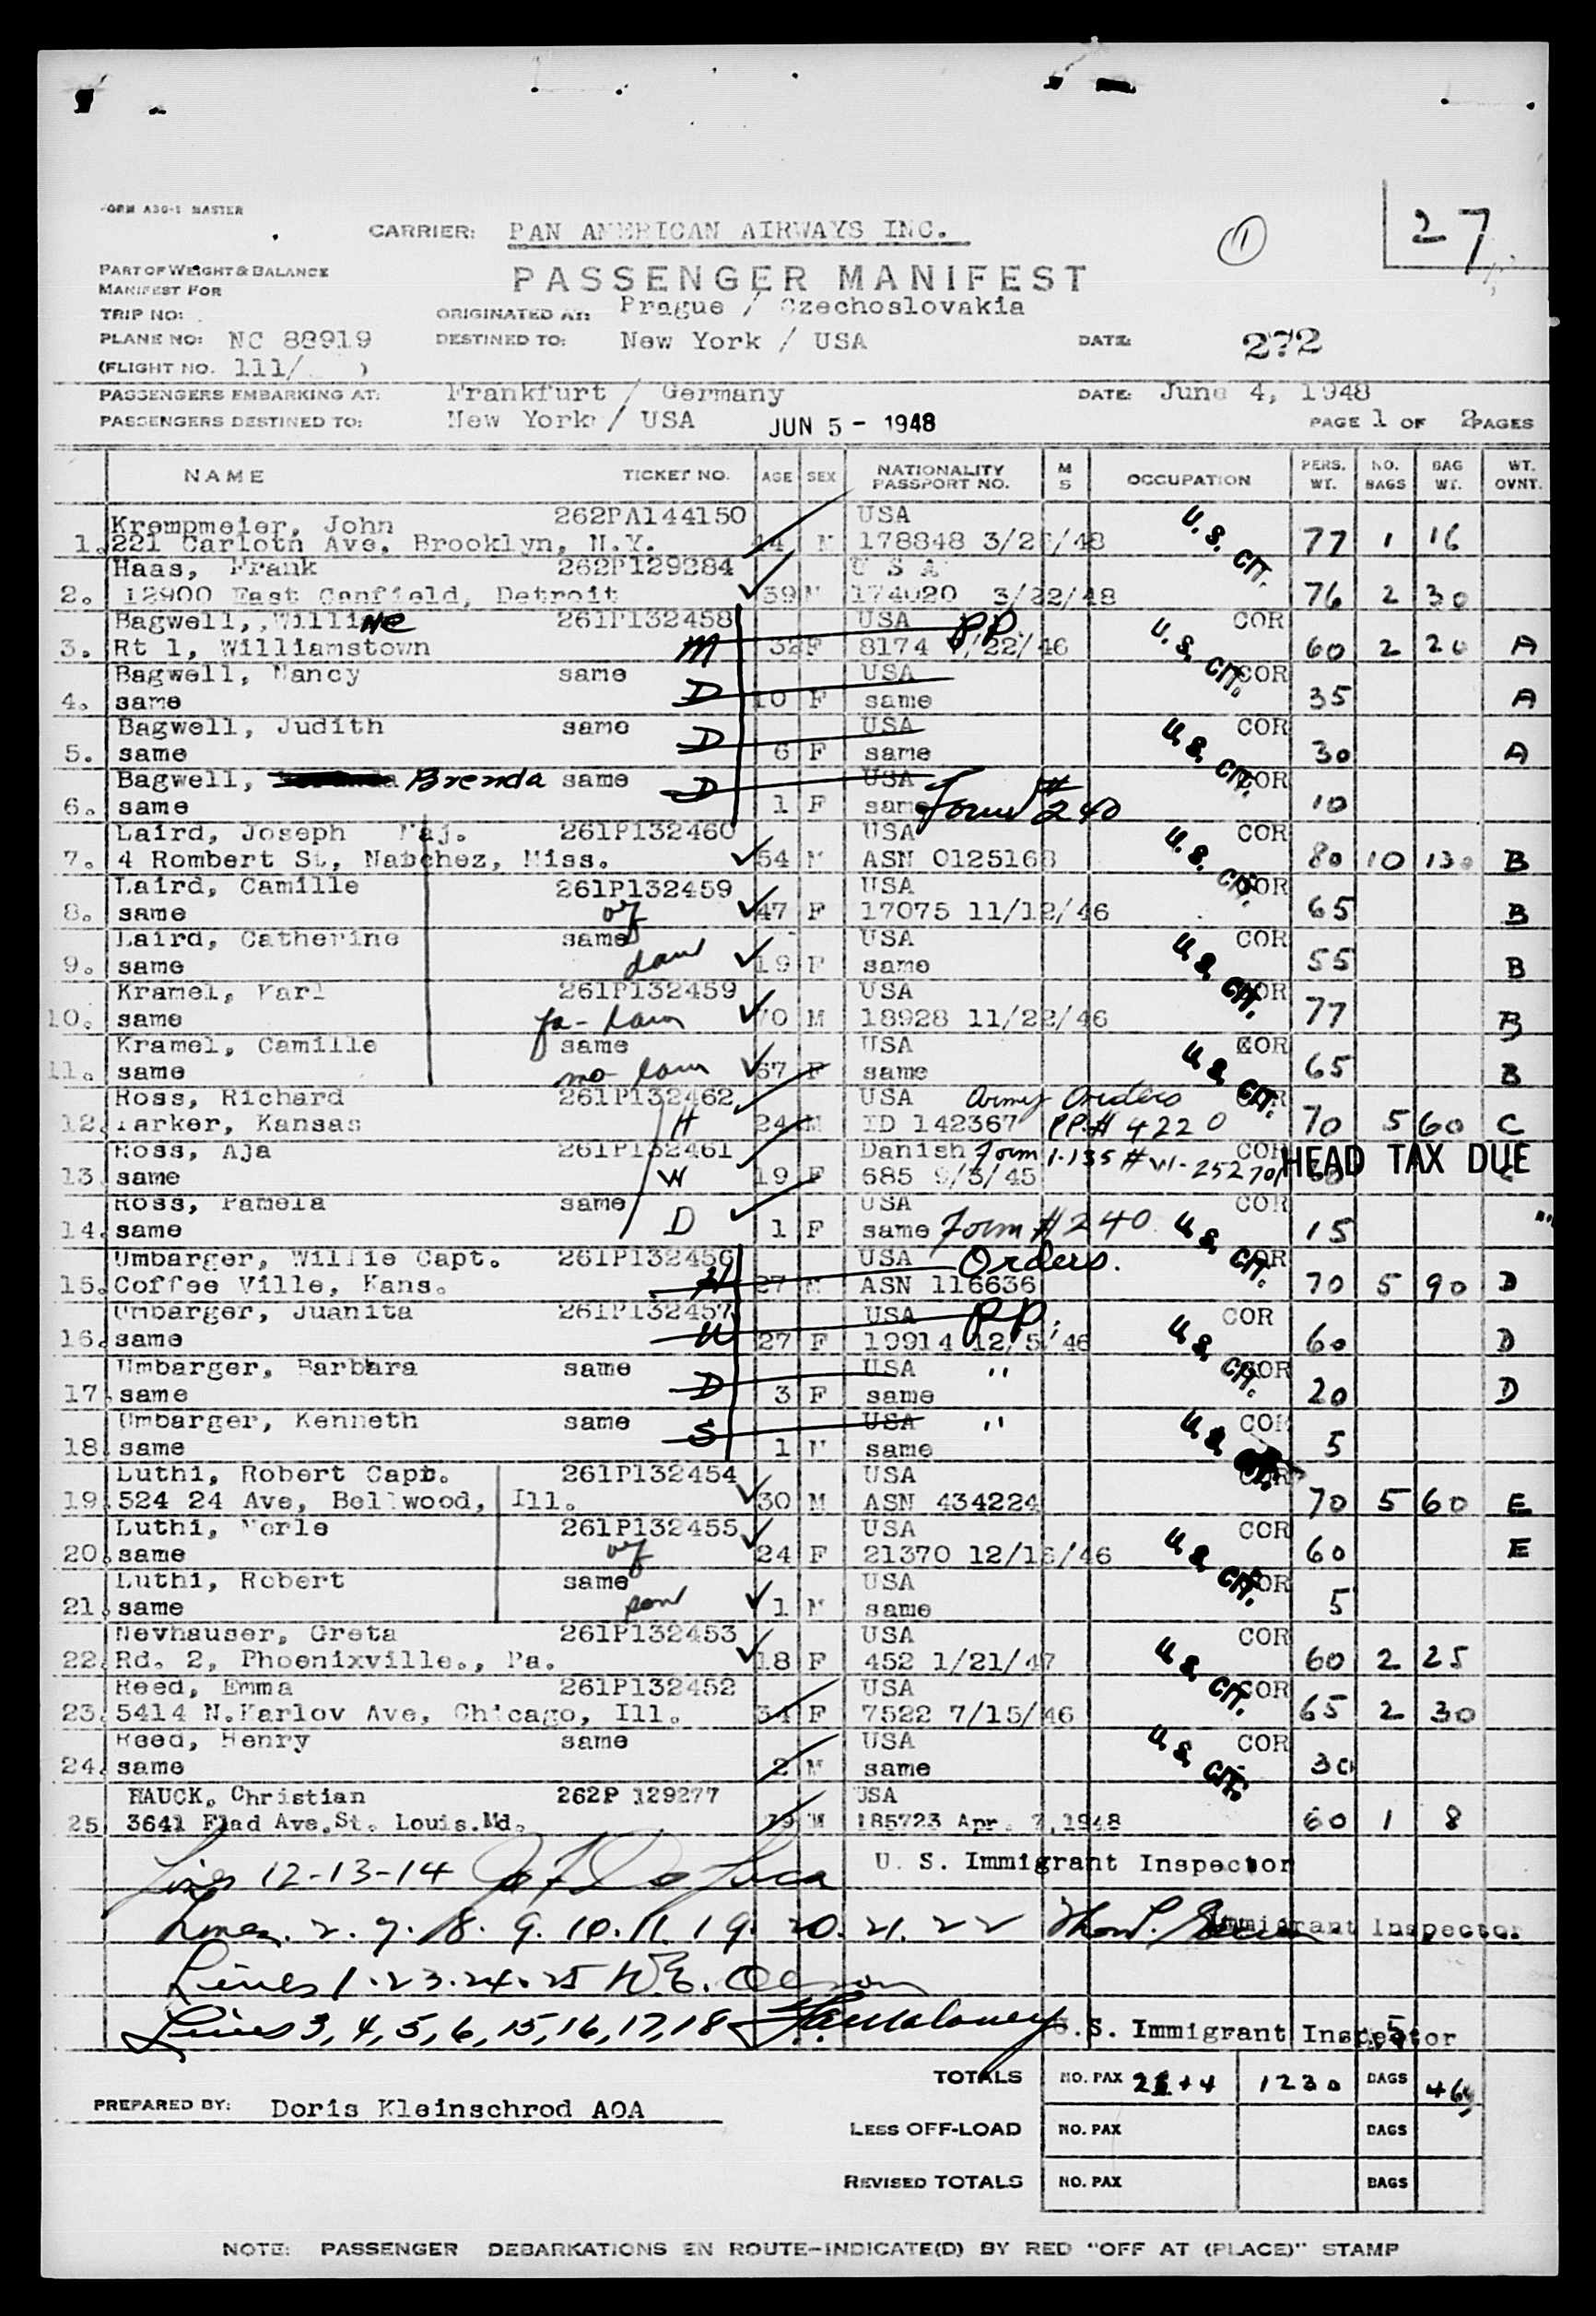 FORM A30-1 MASTER
CARRIER: PAN AMERICAN AIRWAYS INC.
1
27
PART OF WEIGHT & BALANCE
MANIFEST FOR
PASSENGER MANIFEST
TRIP NO:
ORIGINATED AT: Prague / Czechoslovakia
PLANE NO: NC 88919
DESTINED TO: New York / USA
DATE:
272
(FLIGHT NO. 111/ )
PASSENGERS EMBARKING AT: Frankfurt / Germany
DATE: June 4, 1948
PASSENGERS DESTINED TO: New York / USA
JUN 5 - 1948
PAGE 1 OF 2 PAGES
NAME TICKET NO. AGE SEX NATIONALITY PASSPORT NO. M S OCCUPATION PERS. WT. NO. BAGS BAG WT. WT. OVNT.
Krempmeier, John 262PA144150 USA U. S. CIT.
1. 221 Carloth Ave, Brooklyn, N.Y. 44 M 178848 77 1 16
Haas, Frank 262P129284 U S A
2. 12900 East Canfield, Detroit 39 M 174020 3/22/48 76 2 30
Bagwell, Willine 261P132458 USA PP COR U. S. CIT.
3. Rt 1, Williamstown M 32 F 8174 /22/46 60 2 20 A
Bagwell, Nancy same USA COR
4. same D 10 F same 35 A
Bagwell, Judith same USA COR U. S. CIT.
5. same D 6 F same 30 A
Bagwell, Brenda same USA COR
6. same D 1 F same Form # 240 10
Laird, Joseph Maj. 261P132460 USA COR U. S. CIT.
7. 4 Rombert St, Natchez, Miss. 54 M ASN 0125168 80 10 130 B
Laird, Camille 261P132459 USA COR
8. same wf 47 F 17075 11/12/46 65 B
Laird, Catherine same USA COR U. S. CIT.
9. same dau 19 F same 55 B
Kramel, Karl 261P132459 USA COR
10. same fa-law 70 M 18928 11/22/46 77 B
Kramel, Camille same USA COR U. S. CIT.
11. same mo law 67 F same 65 B
Ross, Richard 261P132462 USA Army Orders COR
12. Parker, Kansas H 24 M ID 142367 PP.# 4220 70 5 60 C
Ross, Aja 261P132461 Danish Form I-135 # VI-252701 COR HEAD TAX DUE
13. same W 19 F 685 9/3/45 60
Ross, Pamela same USA COR
14. same D 1 F same Form # 240 U. S. CIT. 15
Umbarger, Willie Capt. 261P132456 USA Orders. COR
15. Coffee Ville, Kans. H 27 M ASN 116636 70 5 90 D
Umbarger, Juanita 261P132457 USA PP. COR U. S. CIT.
16. same W 27 F 19914 12/5/46 60 D
Umbarger, Barbara same USA " COR
17. same D 3 F same 20 D
Umbarger, Kenneth same USA " COR U. S. CIT.
18. same S 1 M same 5
Luthi, Robert Capt. 261P132454 USA COR
19. 524 24 Ave, Bellwood, Ill. 30 M ASN 434224 70 5 60 E
Luthi, Merle 261P132455 USA COR U. S. CIT.
20. same wf 24 F 21370 12/18/46 60 E
Luthi, Robert same USA COR
21. same son 1 M same 5
Nevhauser, Greta 261P132453 USA COR U. S. CIT.
22. Rd. 2, Phoenixville., Pa. 18 F 452 1/21/47 60 2 25
Reed, Emma 261P132452 USA COR
23. 5414 N.Karlov Ave, Chicago, Ill. 34 F 7522 7/15/46 65 2 30
Reed, Henry same USA COR U. S. CIT.
24. same 2 M same 30
HAUCK, Christian 262P 129277 USA
25 3641 Flad Ave.St. Louis.Md. 79 M 185723 Apr. 7,1948 60 1 8
Lines 12-13-14 Jo F De Luca U. S. Immigrant Inspector
Lines. 2. 7. 8. 9. 10. 11. 19. 20. 21. 22 Immigrant Inspector
Lines 1.23.24.25 W.E. Olson
Lines 3, 4, 5, 6, 15, 16, 17, 18 Maloney U.S. Immigrant Inspector
TOTALS NO. PAX 21+4 1230 BAGS 469
PREPARED BY: Doris Kleinschrod AOA
LESS OFF-LOAD NO. PAX BAGS
REVISED TOTALS NO. PAX BAGS
NOTE: PASSENGER DEBARKATIONS EN ROUTE-INDICATE(D) BY RED "OFF AT (PLACE)" STAMP